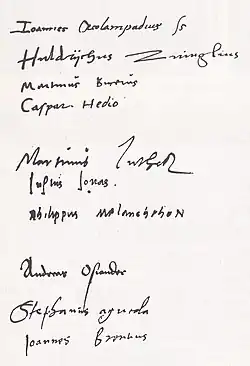 Ioannes Oecolampadius ss
Huldrychus Zwinglius
Martinus Bucerus
Caspar Hedio
Martinus Luther
Iustus Jonas.
Philippus Melanchthon
Andreas Osiander
Stephanus agricola
Joannes Brentius